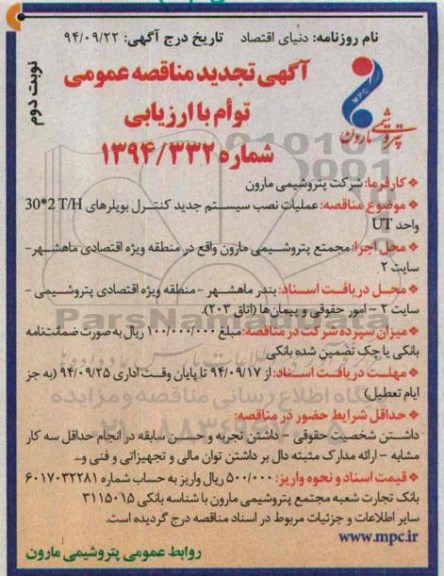 نام روزنامه: دنیای اقتصاد تاریخ درج آگهی: ۹۴/۰۹/۲۲
نوبت دوم
آگهی تجدید مناقصه عمومی
توأم با ارزیابی
شماره ۱۳۹۴/۳۳۲
MPC
پتروشیمی مارون
کارفرما: شرکت پتروشیمی مارون
موضوع مناقصه: عملیات نصب سیستم جدید کنترل بویلرهای 30*2 T/H
واحد UT
محل اجرا: مجمتع پتروشیمی مارون واقع در منطقه ویژه اقتصادی ماهشهر-
سایت ۲
محل دریافت اسناد: بندر ماهشهر - منطقه ویژه اقتصادی پتروشیمی -
سایت ۲ - امور حقوقی و پیمان‌ها (اتاق ۲۰۳).
میزان سپرده شرکت در مناقصه: مبلغ ۱۰۰/۰۰۰/۰۰۰ ریال به صورت ضمانتنامه
بانکی یا چک تضمین شده بانکی
مهلت دریافت اسناد: از ۹۴/۰۹/۱۷ تا پایان وقت اداری ۹۴/۰۹/۲۵ (به جز
ایام تعطیل)
حداقل شرایط حضور در مناقصه:
داشتن شخصیت حقوقی - داشتن تجربه و حسن سابقه در انجام حداقل سه کار
مشابه - ارائه مدارک مثبته دال بر داشتن توان مالی و تجهیزاتی و فنی و...
قیمت اسناد و نحوه واریز: ۵۰۰/۰۰۰ ریال واریز به حساب شماره ۶۰۱۷۰۳۲۲۸۱
بانک تجارت شعبه مجتمع پتروشیمی مارون با شناسه بانکی ۳۱۱۵۰۱۵
سایر اطلاعات و جزئیات مربوط در اسناد مناقصه درج گردیده است.
www.mpc.ir
روابط عمومی پتروشیمی مارون